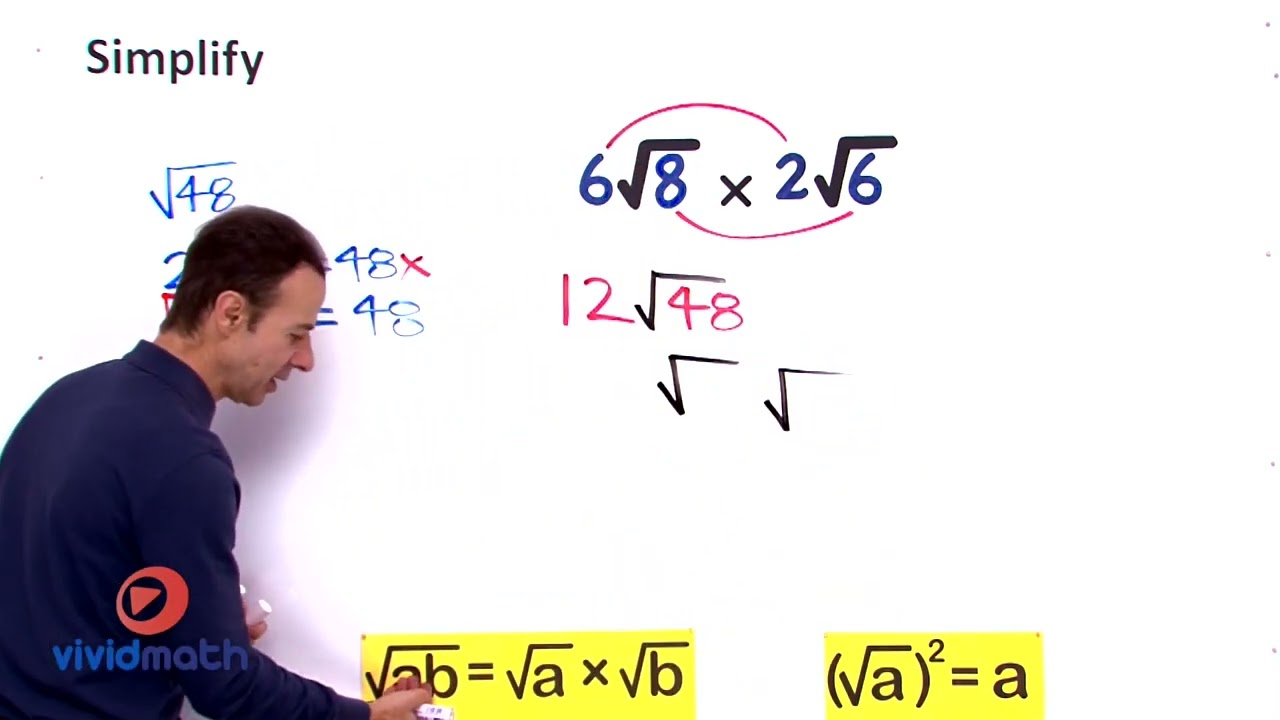 Simplify
6√8 × 2√6
√48
= 48×
= 48
12√48
√ √
vividmath
√ab = √a × √b
(√a)² = a